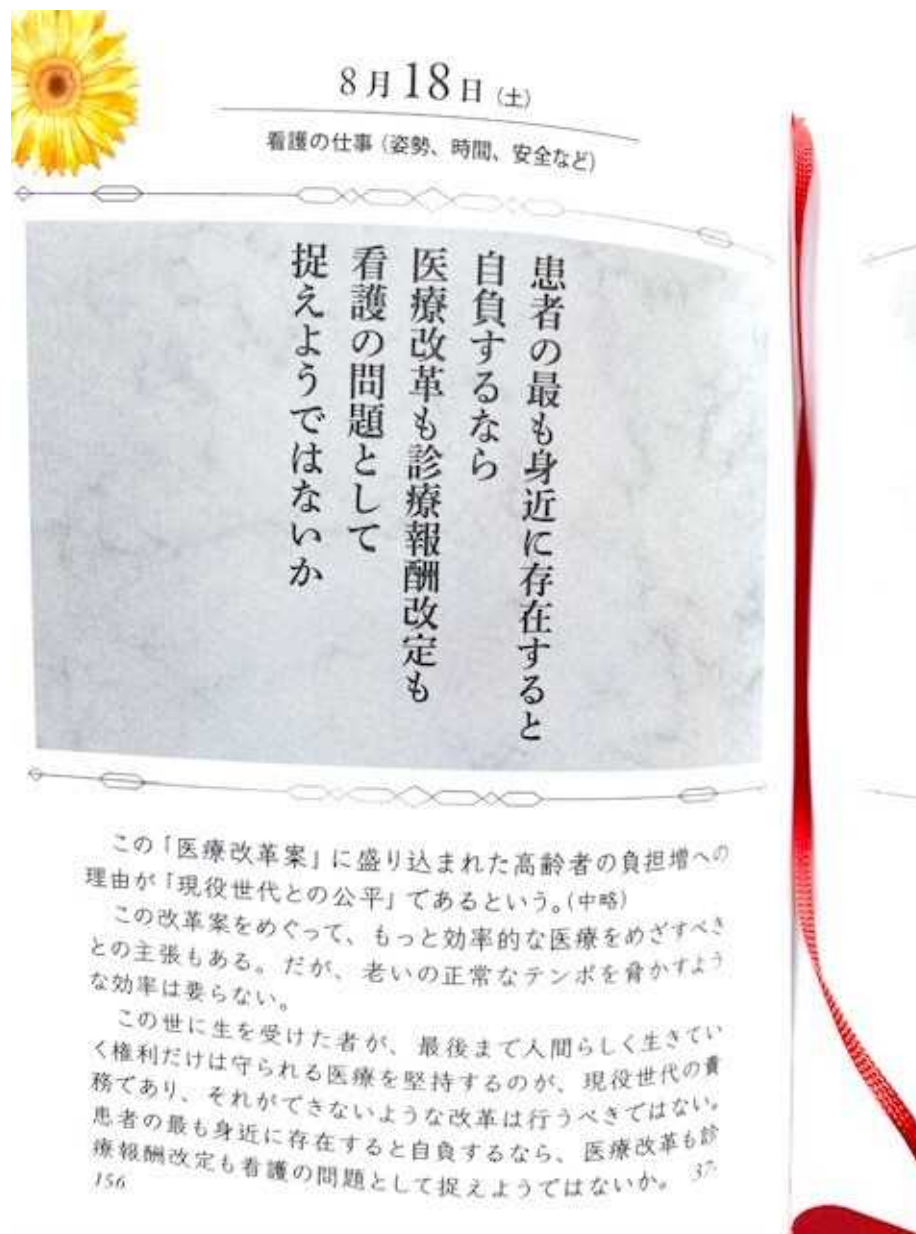 8月18日(土)
看護の仕事(姿勢、時間、安全など)
患者の最も身近に存在すると
自負するなら
医療改革も診療報酬改定も
看護の問題として
捉えようではないか
この「医療改革案」に盛り込まれた高齢者の負担増への
理由が「現役世代との公平」であるという。(中略)
この改革案をめぐって、もっと効率的な医療をめざすべき
との主張もある。だが、老いの正常なテンポを脅かすよう
な効率は要らない。
この世に生を受けた者が、最後まで人間らしく生きてい
く権利だけは守られる医療を堅持するのが、現役世代の責
務であり、それができないような改革は行うべきではない。
患者の最も身近に存在すると自負するなら、医療改革も診
療報酬改定も看護の問題として捉えようではないか。 37
156